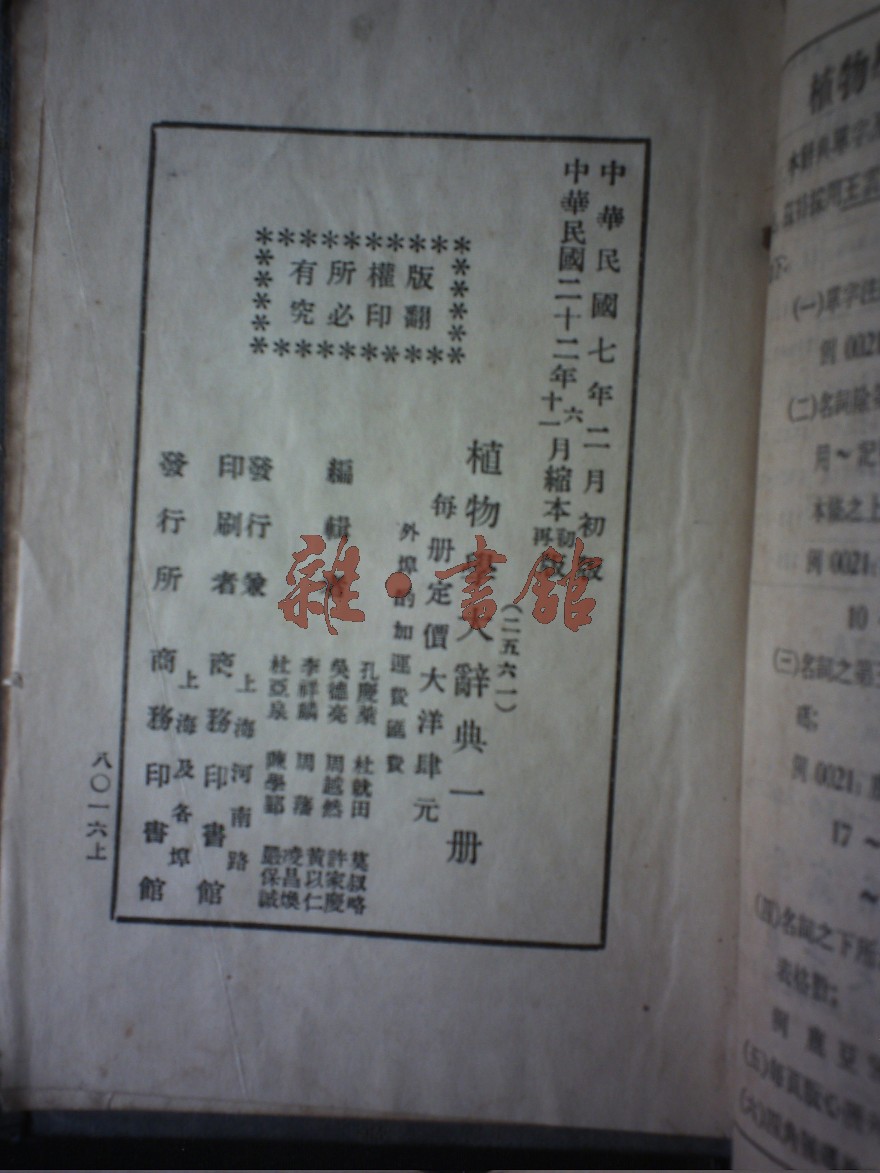 中華民國七年二月初版
中華民國二十二年六十一月縮本初再版
版權所有
翻印必究
(二五六一)
植物學大辭典一册
每册定價大洋肆元
外埠酌加運費匯費
編輯者
孔慶萊 杜就田 莫叔略
吳德亮 周越然 許家慶
李祥麟 周藩 黃以仁
杜亞泉 陳學郢 凌昌煥
嚴保誠
發行兼印刷者
上海河南路
商務印書館
發行所
上海及各埠
商務印書館
八〇一六上
雜·書館
植物
本辭典單字
茲特採用王雲
下:
(一)單字注
例 0021
(二)名詞除
用～記
本條之上
例 0021:
10
(三)名詞之第
碼;
例 0021:
17 ～
～
(四)名詞之下所
表格數;
例
(五)每頁版心
(六)四角號碼